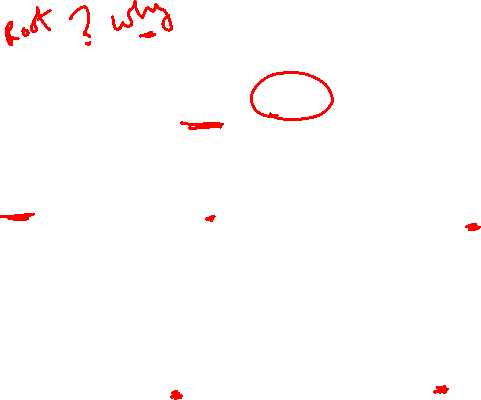 Root ? why